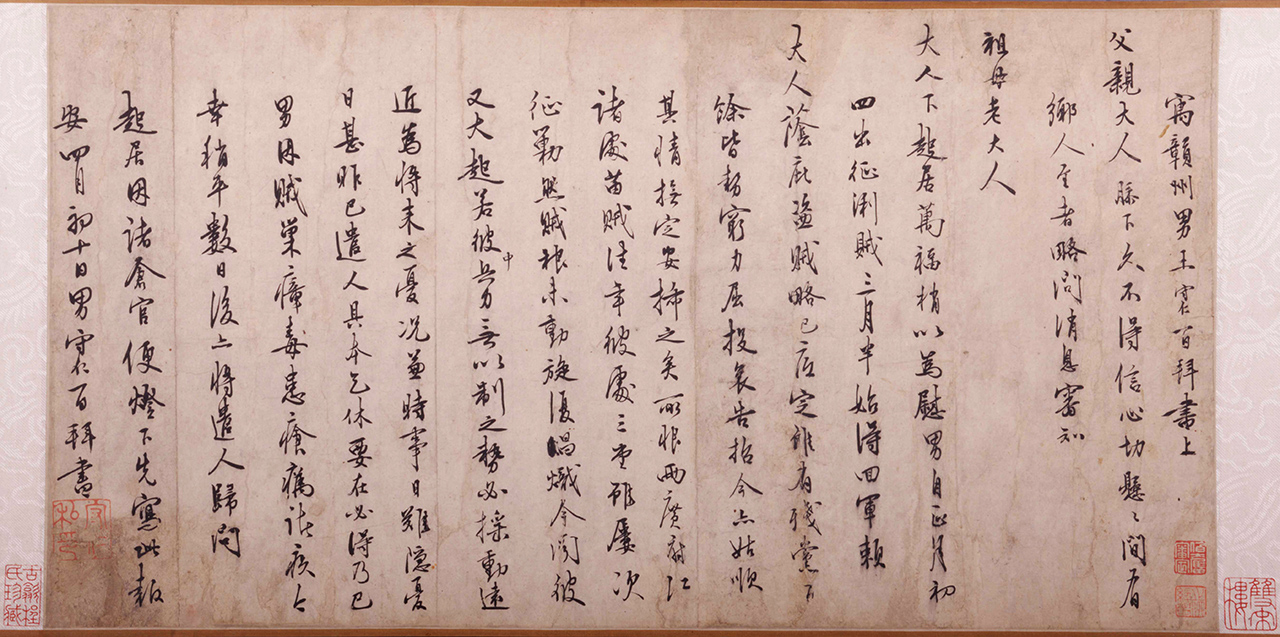 寓贛州男王守仁百拜書上
父親大人膝下久不得信心切懸々間有
鄉人至者略問消息審知
祖母老大人
大人下起居萬福稍以為慰男自正月初
四出征浰賊三月半始得回軍賴
大人蔭庇盜賊略已底定雖有殘黨不
餘皆勢窮力屈投哀告招今亦姑順
其情撫定安插之矣所恨兩廣府江
諸處苗賊往年彼處三堂雖屢次
征勦然賊根未動旋復倡熾今聞彼
又大起若彼中兵力無以制之勢必搖動遠
近為將來之憂况兼時事日難隱憂
日甚昨已遣人具本乞休要在必得乃已
男因賊巢瘴毒患瘡癘諸疾今
幸稍平數日後亦將遣人歸問
起居因諸倉官便燈下先寫此報
安四月初十日男守仁百拜書